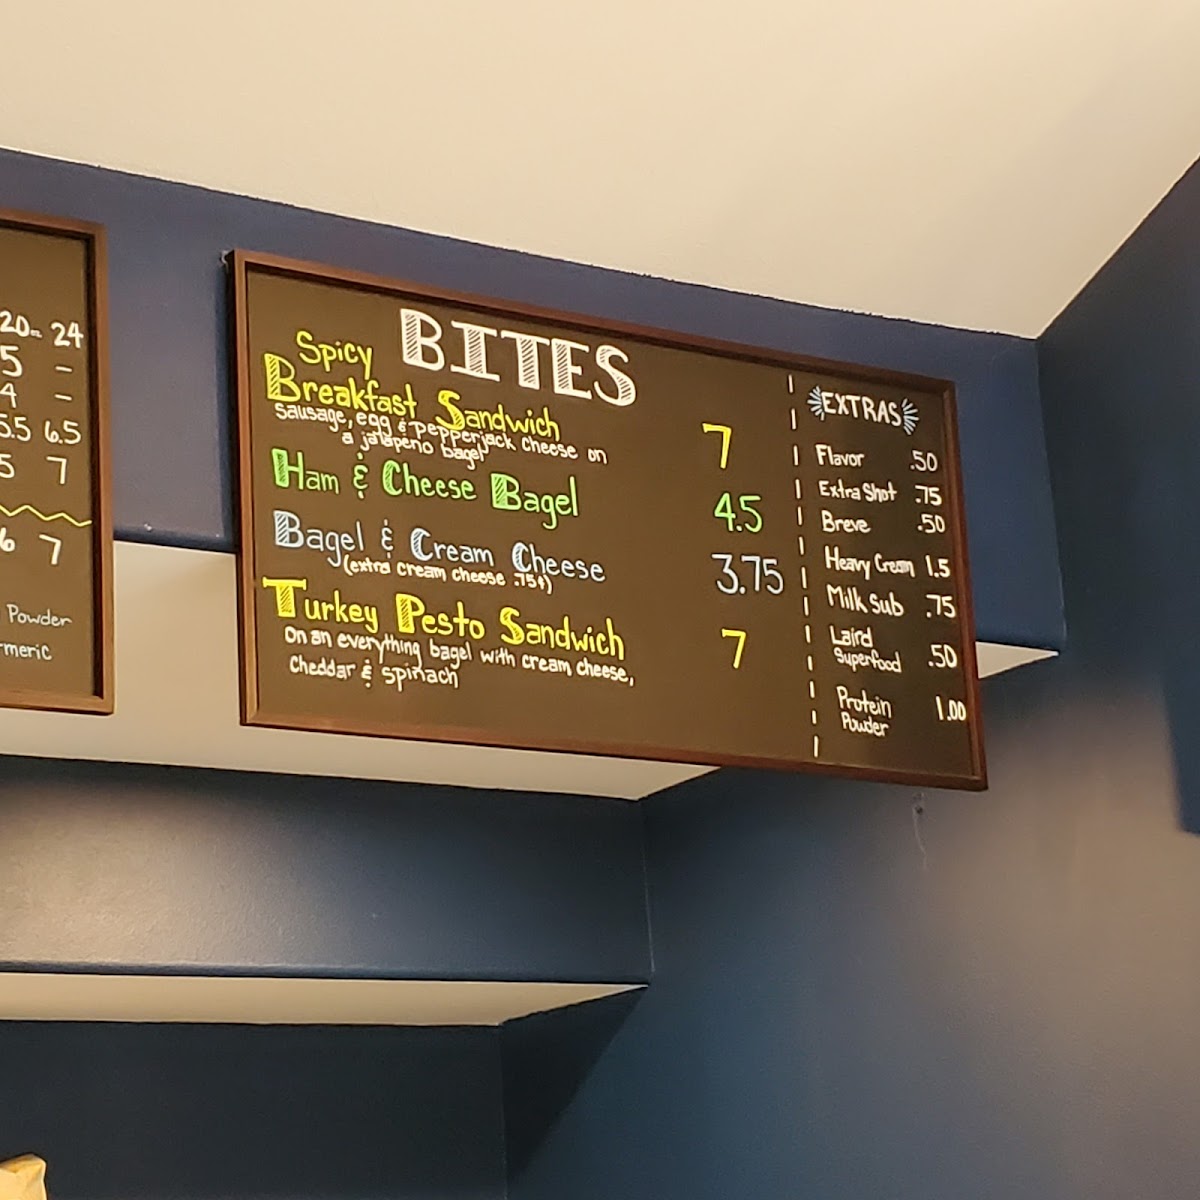 20oz 24
5 -
4 -
5.5 6.5
5 7
6 7
Powder
BITES
Spicy
Breakfast Sandwich 7
sausage, egg & pepperjack cheese on
a jalapeno bagel
Ham & Cheese Bagel 4.5
Bagel & Cream Cheese 3.75
(extra cream cheese .75¢)
Turkey Pesto Sandwich 7
on an everything bagel with cream cheese,
Cheddar & spinach
EXTRAS
Flavor .50
Extra Shot .75
Breve .50
Heavy Cream 1.5
Milk Sub .75
Laird
Superfood .50
Protein 1.00
Powder